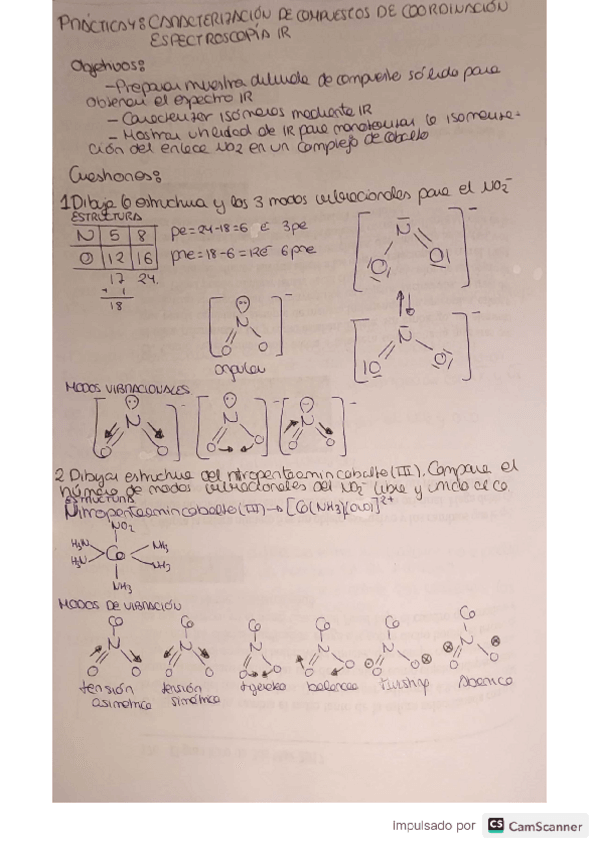 PRÁCTICA 48 CARACTERIZACIÓN DE COMPUESTOS DE COORDINACIÓN
ESPECTROSCOPÍA IR
Objetivos:
-Preparar muestra de compuesto sólido para
obtener el espectro IR
- Caracterizar isómeros mediante IR
- Mostrar utilidad de IR para la isomeriza-
ción del enlace NO2 en un complejo de cobalto
Cuestiones:
1 Dibuja la estructura y los 3 modos vibracionales para el NO2-
ESTRUCTURA
N 5 8 pe=24-18=6 é 3pe
O 12 16 pne=18-6=12é 6pne
17 24.
+ 1
18
N O O -
N O O -
N O O -
angular
MODOS VIBRACIONALES
N O O - N O O - N O O -
2 Dibujar estructura del nitropentaamincobalto(III). Compara el
número de modos vibracionales del NO2- libre y unido al Co.
ESTRUCTURA
Nitropentaamincobalto(III) → [Co(NH3)(NO2)]2+
NO2
H3N NH3
Co
H3N NH3
NH3
MODOS DE VIBRACIÓN
Co Co Co Co Co Co
N N N N N N
O O O O O O O O O O O O
tensión tensión tijereteo balanceo twisting abanico
asimétrica simétrica
Impulsado por CS CamScanner